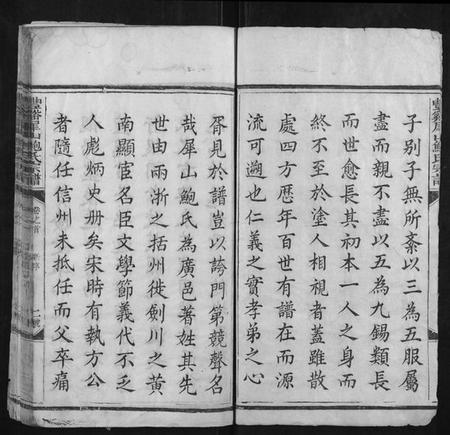 子別子無所紊以三為五服屬
盡而親不盡以五為九錫類長
而世愈長其初本一人之身而
終不至於塗人相視者蓋雖散
處四方歷年百世有譜在而源
流可遡也仁義之實孝弟之心
胥見於譜豈以誇門第競聲名
哉犀山鮑氏為廣邑著姓其先
世由兩浙之括州徙劍川之黄
南顯宦名臣文學節義代不乏
人彪炳史册矣宋時有執方公
者隨任信州未抵任而父卒痛
犀山鮑氏宗譜
卷之首